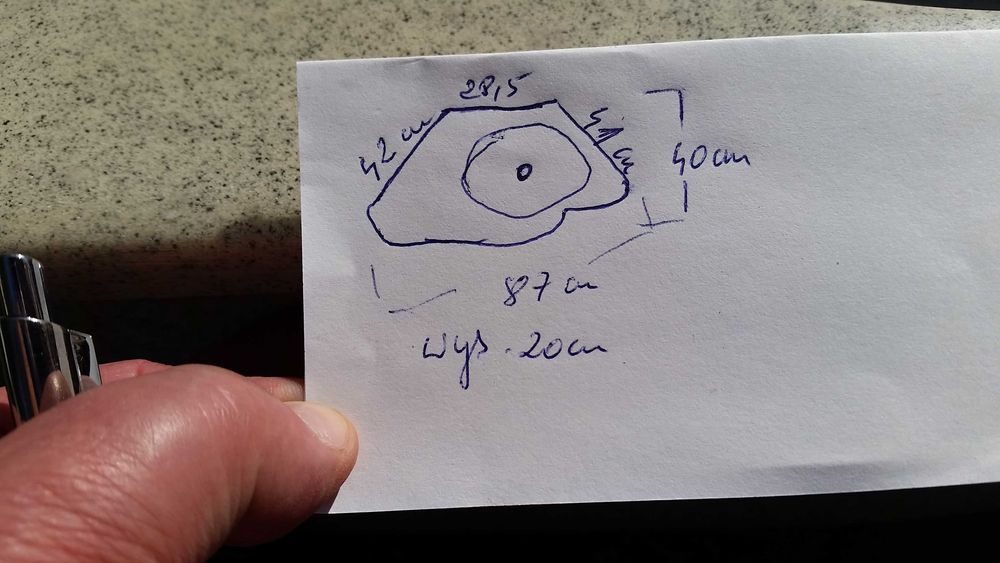 28,5
42 cm
41 cm
40 cm
87 cm
wys. 20 cm